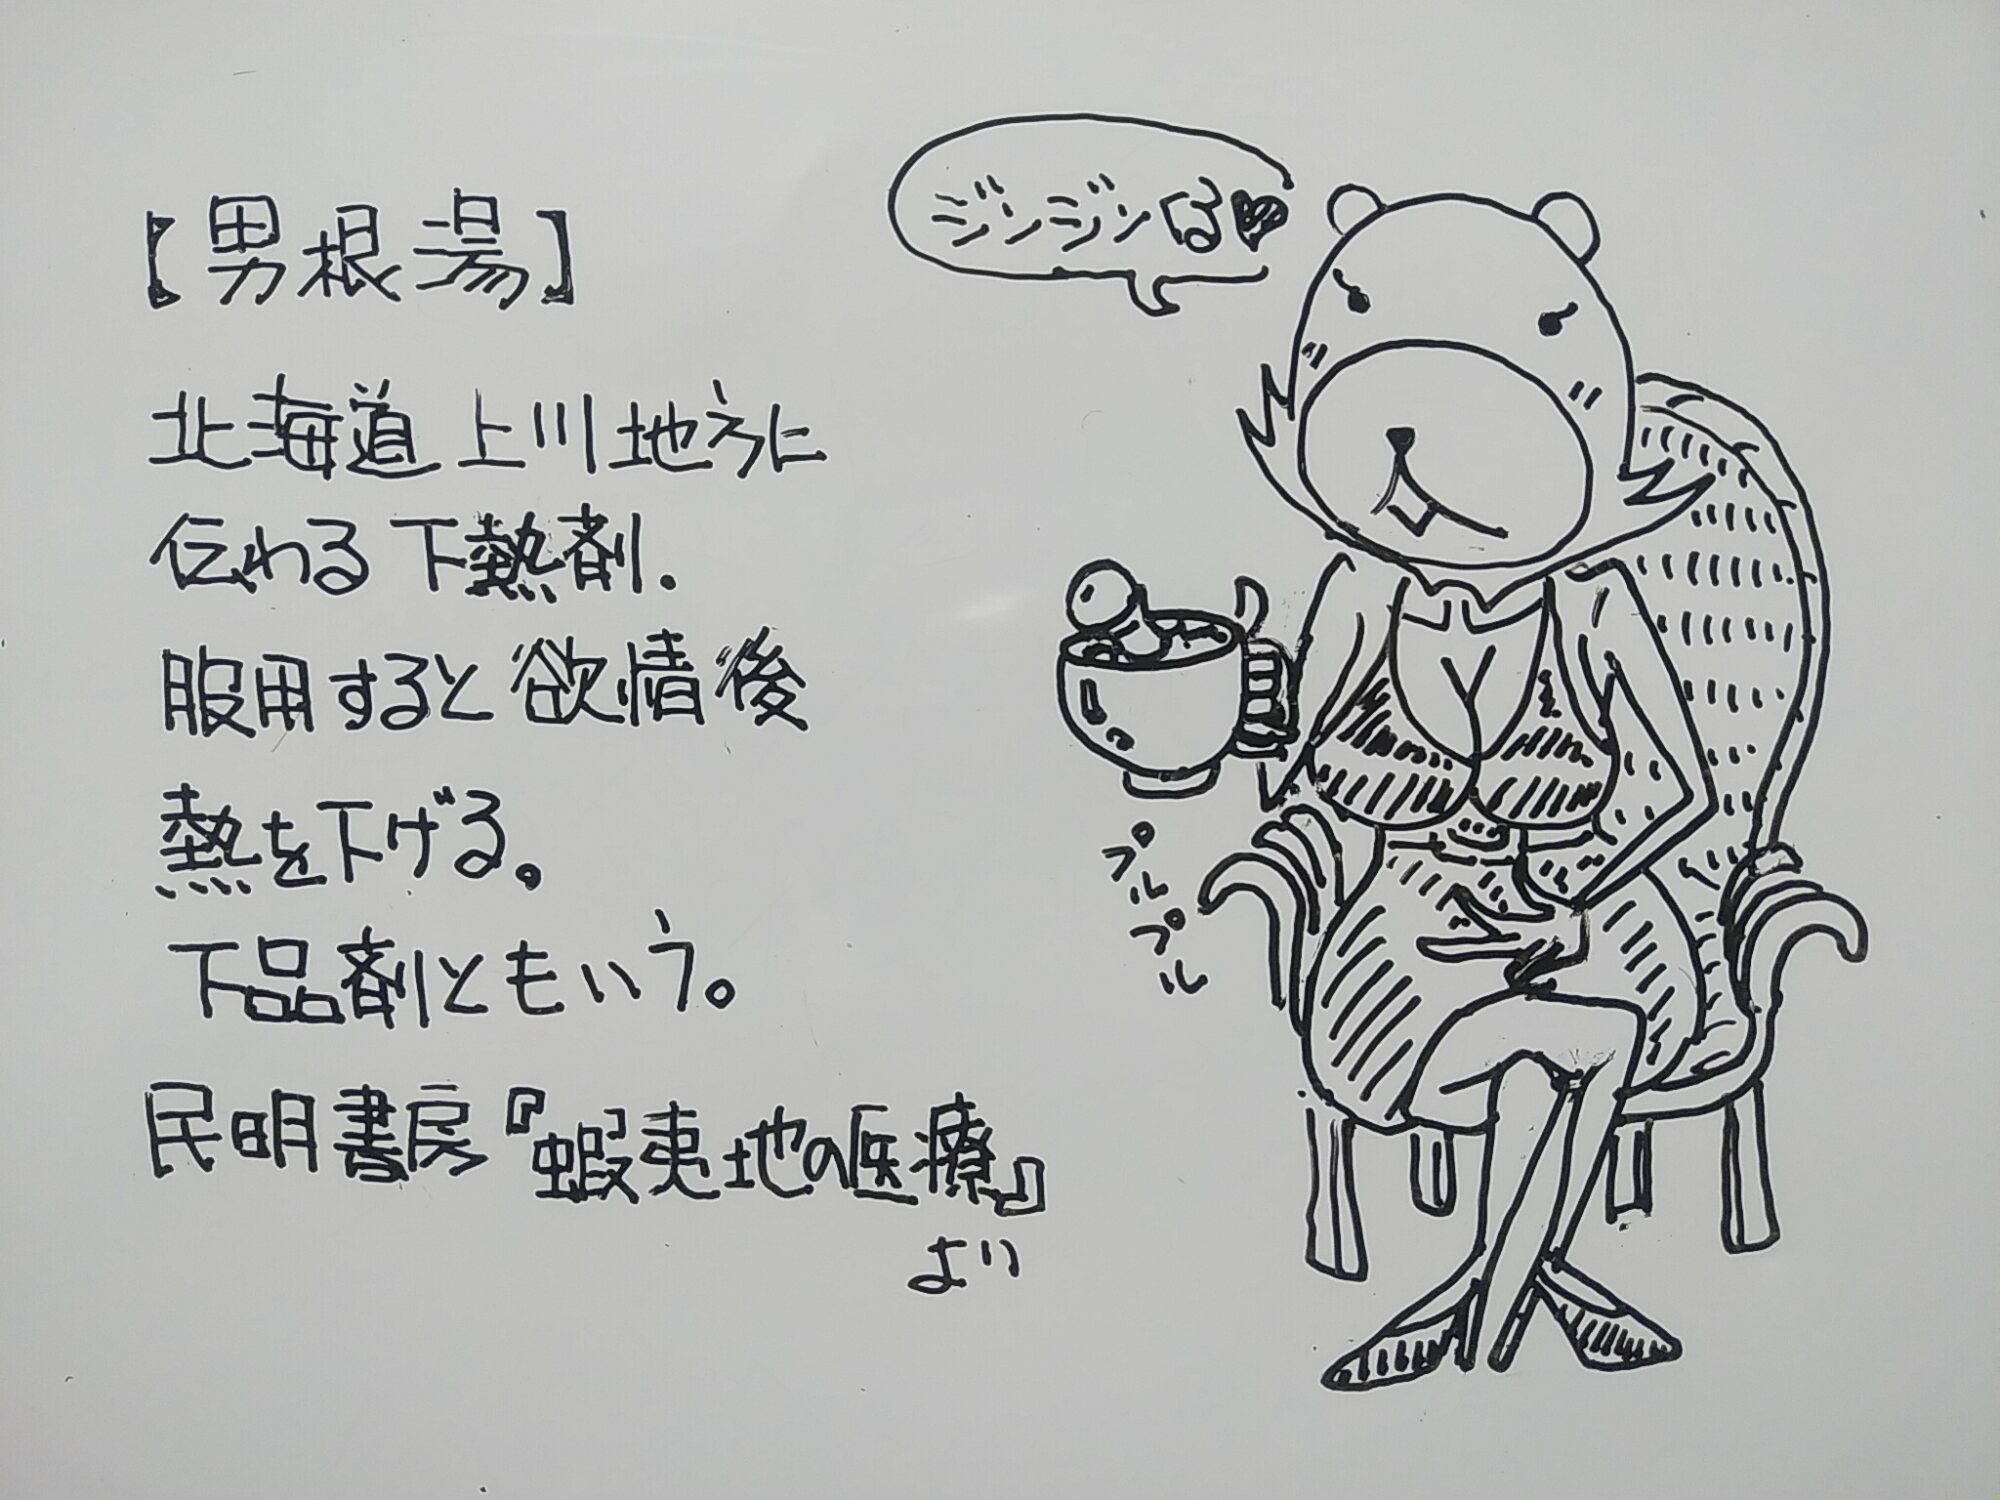 【男根湯】
北海道上川地方に
伝わる下熱剤.
服用すると欲情後
熱を下げる。
下品剤ともいう。
民明書房『蝦夷地の医療』
より
ジンジンは♥
プルプル